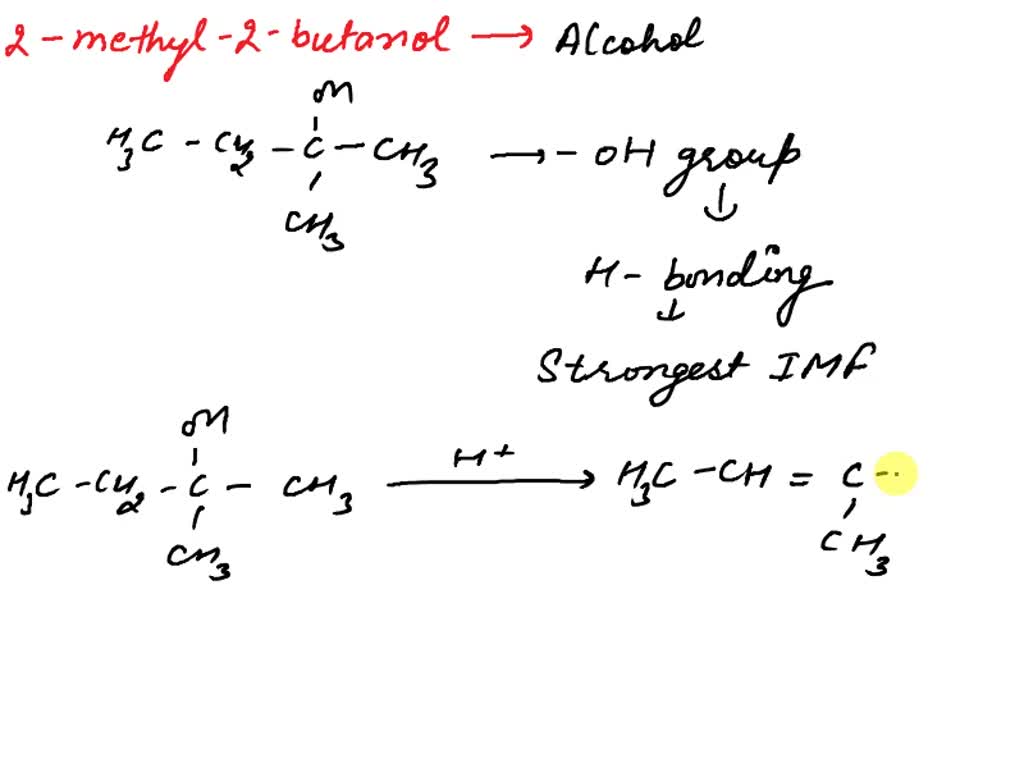 2-methyl-2-butanol → Alcohol
OH
H3C - CH2 - C - CH3 → - OH group
CH3
↓
H- bonding
↓
Strongest IMF
OH
H3C - CH2 - C - CH3 H+ → H3C - CH = C -
CH3
CH3